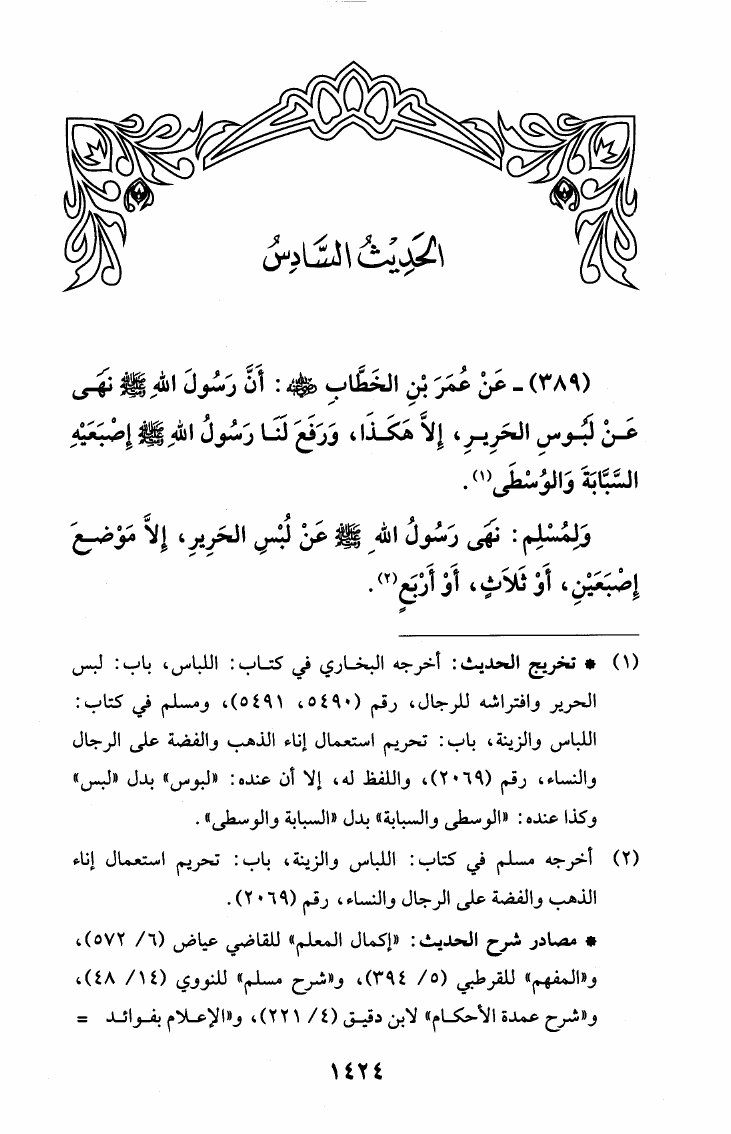 الحَدِيْثُ السَّادِسُ
(٣٨٩) ـ عَنْ عُمَرَ بْنِ الخَطَّابِ ﵁: أَنَّ رَسُولَ اللهِ ﷺ نَهَى
عَنْ لَبُوسِ الحَرِيرِ، إِلاَّ هَكَذَا، وَرَفَعَ لَنَا رَسُولُ اللهِ ﷺ إِصْبَعَيْهِ
السَّبَّابَةَ وَالوُسْطَى(١).
وَلِمُسْلِمٍ: نَهَى رَسُولُ اللهِ ﷺ عَنْ لُبْسِ الحَرِيرِ، إِلاَّ مَوْضِعَ
إِصْبَعَيْنِ، أَوْ ثَلاَثٍ، أَوْ أَرْبَعٍ(٢).
(١) * تخريج الحديث: أخرجه البخاري في كتاب: اللباس، باب: لبس
الحرير وافتراشه للرجال، رقم (٥٤٩٠، ٥٤٩١)، ومسلم في كتاب:
اللباس والزينة، باب: تحريم استعمال إناء الذهب والفضة على الرجال
والنساء، رقم (٢٠٦٩)، واللفظ له، إلا أن عنده: «لبوس» بدل «لبس»
وكذا عنده: «الوسطى والسبابة» بدل «السبابة والوسطى».
(٢) أخرجه مسلم في كتاب: اللباس والزينة، باب: تحريم استعمال إناء
الذهب والفضة على الرجال والنساء، رقم (٢٠٦٩).
* مصادر شرح الحديث: «إكمال المعلم» للقاضي عياض (٦/ ٥٧٢)،
و«المفهم» للقرطبي (٥/ ٣٩٤)، و«شرح مسلم» للنووي (١٤/ ٤٨)،
و«شرح عمدة الأحكام» لابن دقيق (٤/ ٢٢١)، و«الإعلام بفوائد =
١٤٢٤